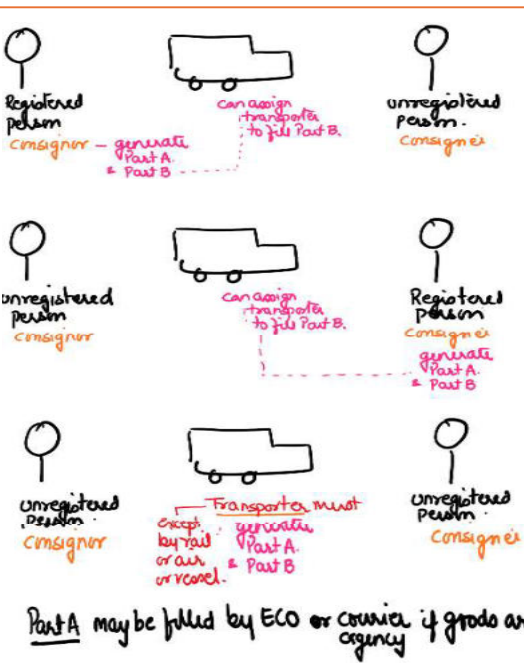 Registered
person
consignor - generate
Part A
& Part B
can assign
transporter
to fill Part B.
unregistered
person.
Consignee
unregistered
person
consignor
can assign
transporter
to fill Part B.
Registered
person
Consignee
generate
Part A
& Part B
unregistered
person
consignor
Transporter must
generate
Part A
& Part B
except
by rail
or air
or vessel.
unregistered
person.
Consignee
Part A may be filled by ECO or courier if goods are
agency